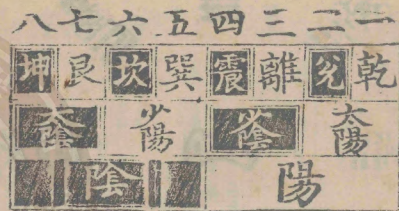 一二三四五六七八
乾兌離震巽坎艮坤
太陽 少陰 少陽 太陰
陽 陰